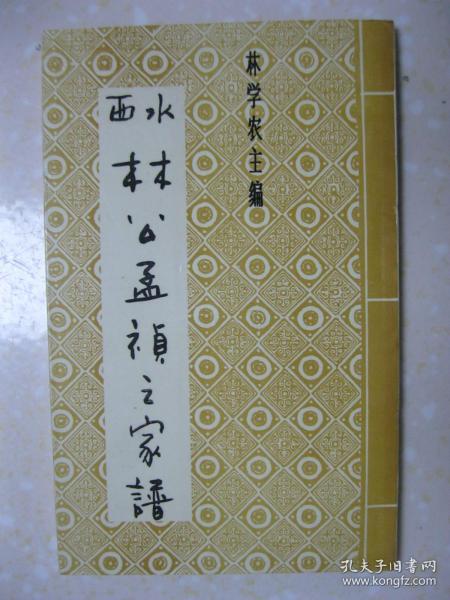 林学农主编
西水
林公孟禎之家譜
孔夫子旧书网
www.kongfz.com